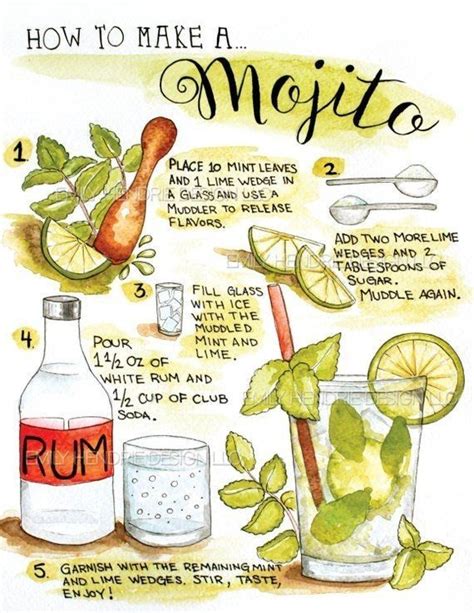 HOW TO MAKE A...
Mojito
1.
PLACE 10 MINT LEAVES
AND 1 LIME WEDGE IN
A GLASS AND USE A
MUDDLER TO RELEASE
FLAVORS.
2.
ADD TWO MORE LIME
WEDGES AND 2
TABLESPOONS OF
SUGAR.
MUDDLE AGAIN.
3.
FILL GLASS
WITH ICE
WITH THE
MUDDLED
MINT AND
LIME.
4.
POUR
1 1/2 OZ OF
WHITE RUM AND
1/2 CUP OF CLUB
SODA.
RUM
5. GARNISH WITH THE REMAINING MINT
AND LIME WEDGES. STIR, TASTE,
ENJOY!
EMILY HENDRIE DESIGN, LLC
EMILY HENDRIE DESIGN, LLC
EMILY HENDRIE DESIGN, LLC